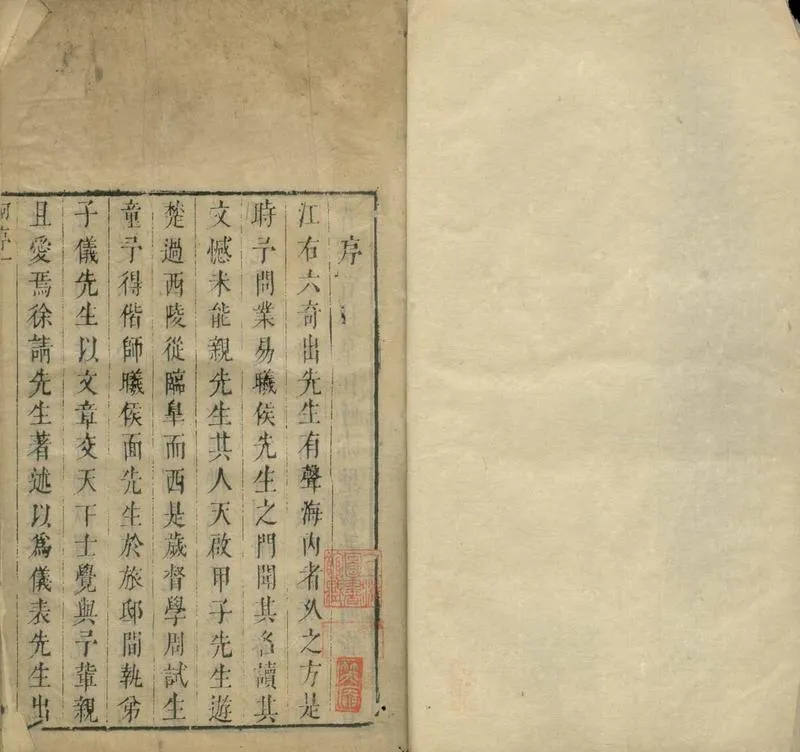 序
江右六奇出先生有聲海內者久之方是
時予問業易曦侯先生之門聞其名讀其
文憾未能親先生其人天啟甲子先生遊
楚過西陵從臨皐而西是歲督學周試生
童予得偕師曦侯面先生於旅邸間執弟
子儀先生以文章交天下士覺與予輩親
且愛焉徐請先生著述以爲儀表先生出
序一